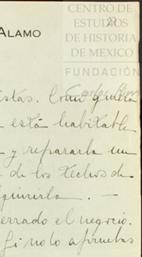 CENTRO DE
ESTUDIOS
DE HISTORIA
DE MEXICO
FUNDACIÓN
ALAMO
istas. Como quiera
está habitable
y repararla un
de los techos de
errado el negocio.
Si no lo apruebas